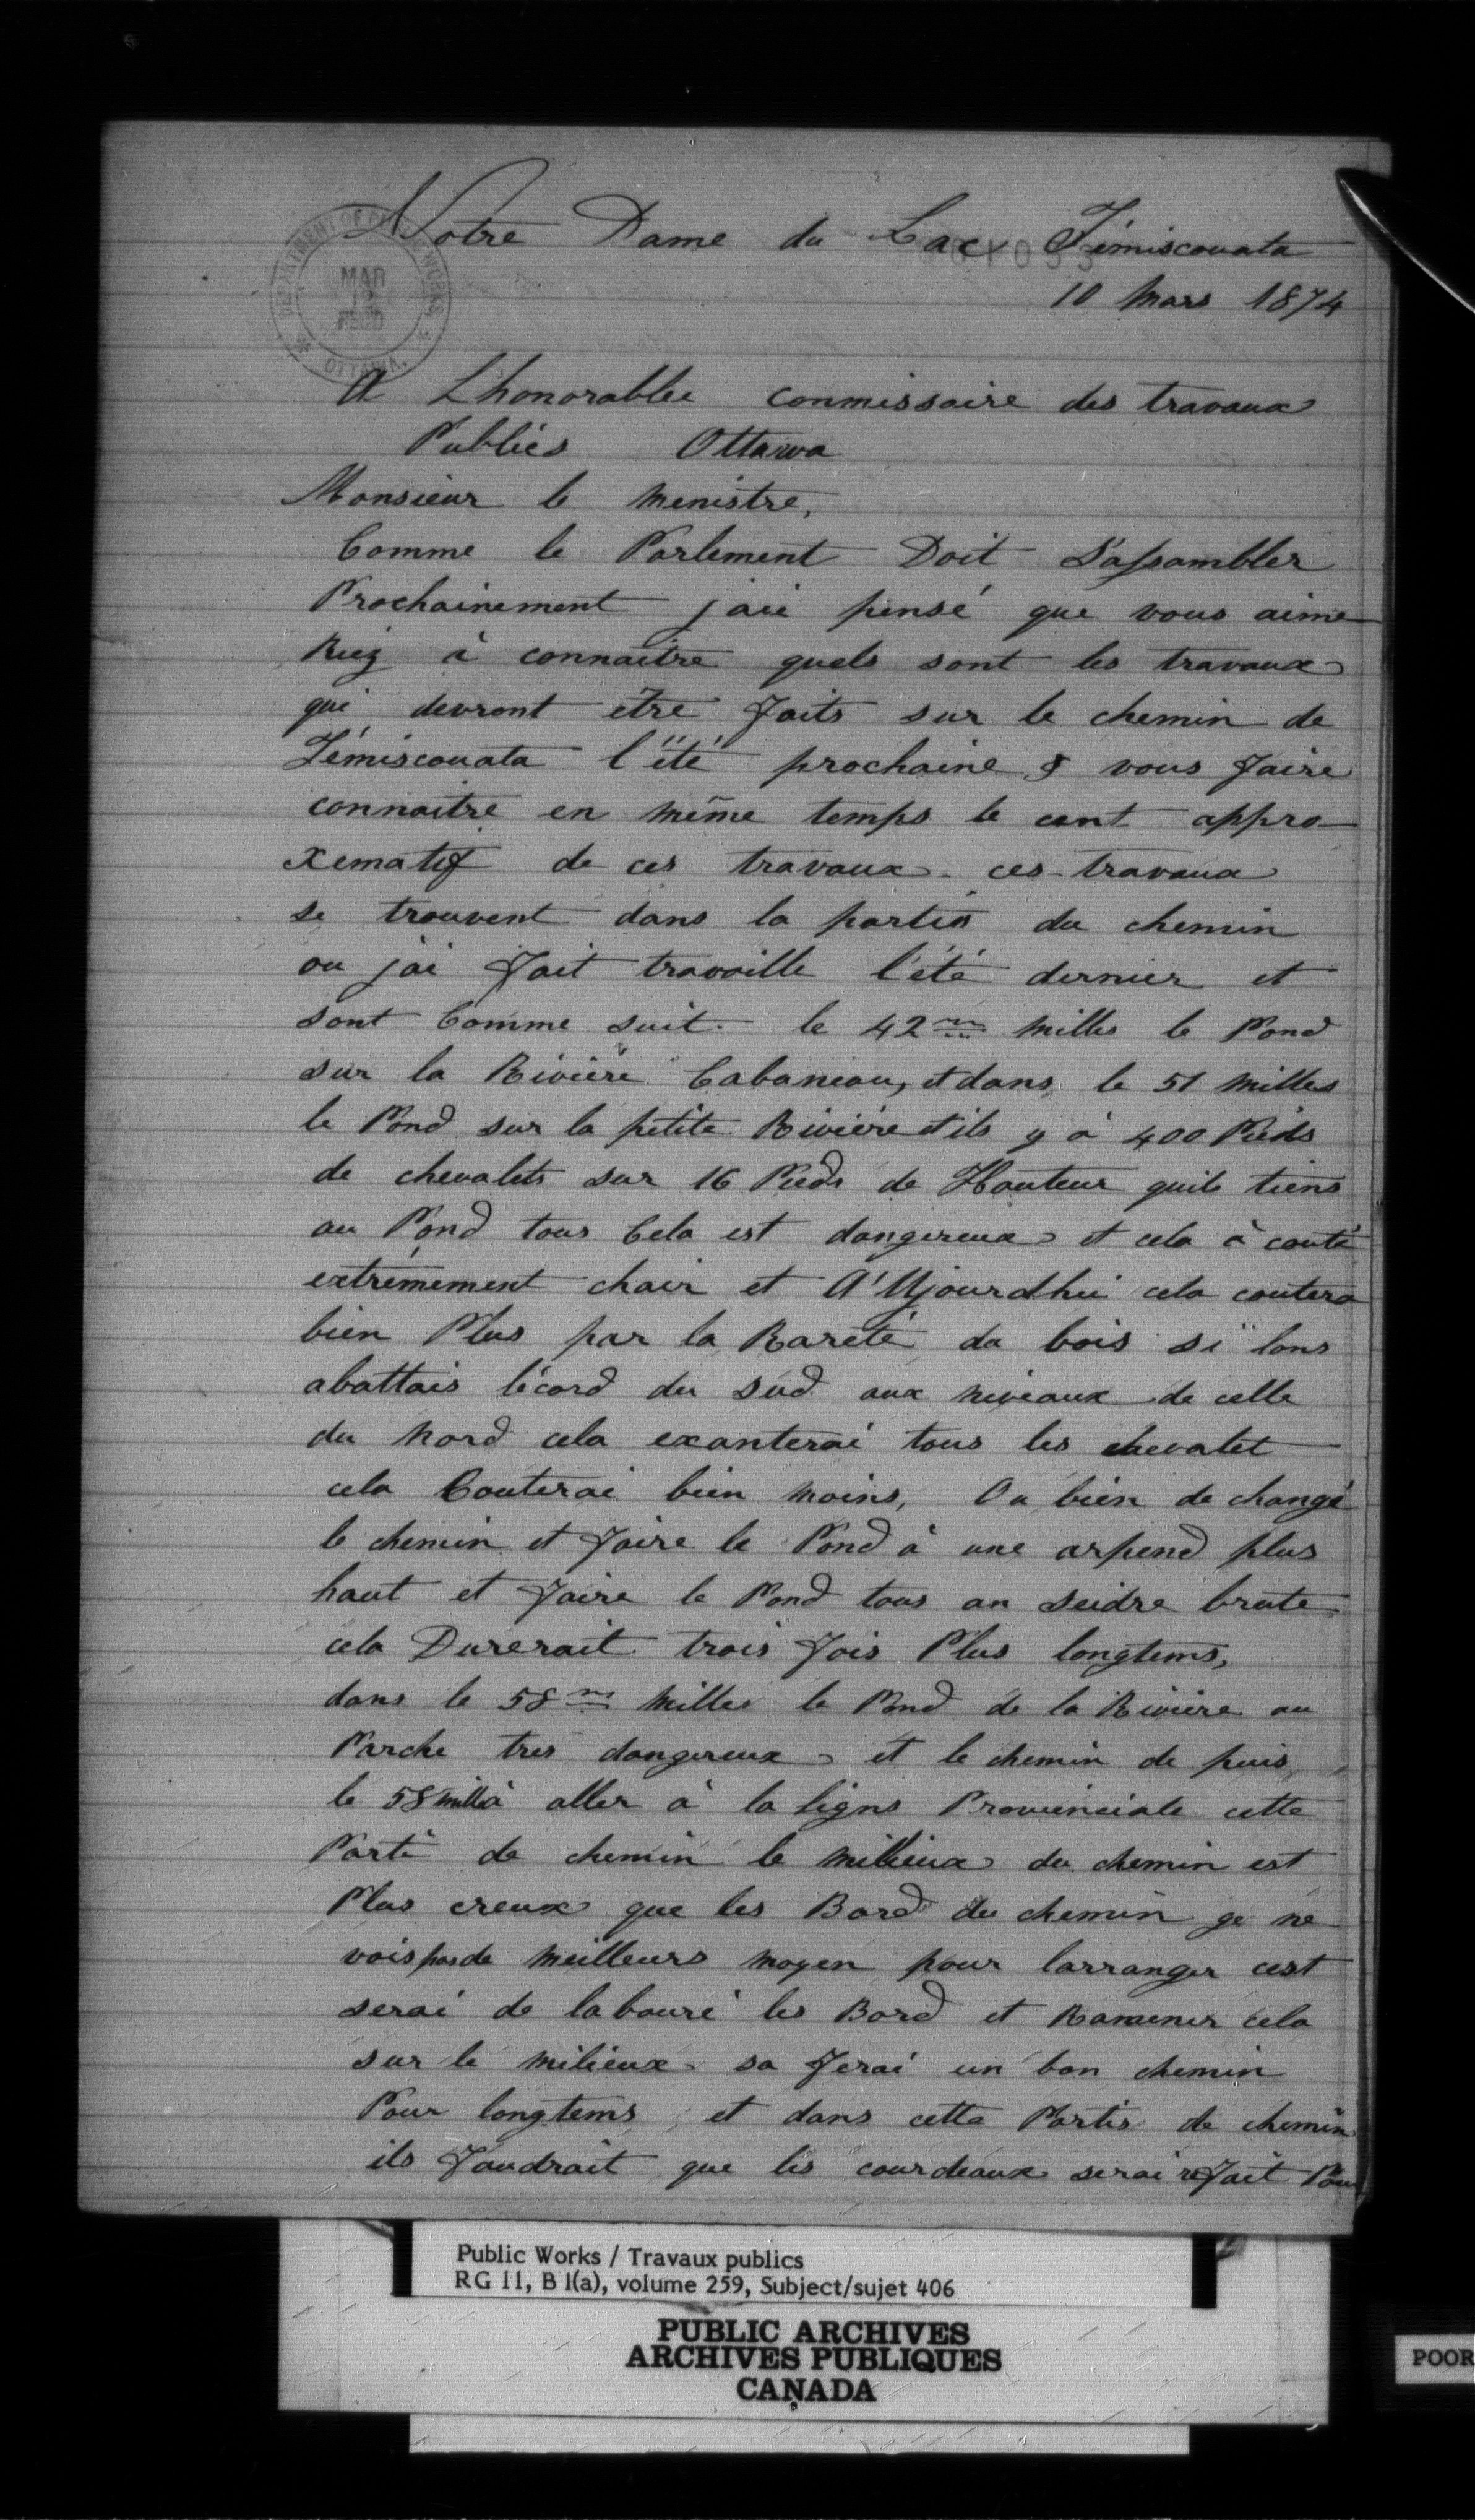 Notre Dame du Lac Témiscouata
10 Mars 1874
DEPARTMENT OF PUBLIC WORKS
MAR
REC'D
OTTAWA.
A Lhonorablee commissaire des travaux
Publics Ottawa
Monsieur le menistre,
Comme le Parlement Doit S'assambler
Prochainement jaie pensé que vous aime
Riez à connaitre quels sont les travaux
qui devront etre faits sur le chemin de
Témiscouata l'été prochaine & vous faire
connaitre en même temps le cout appro-
ximatif de ces travaux. ces travaux
se trouvent dans la partie du chemin
ou jai fait travaille l'été dernier et
sont Comme suit. le 42me milles le Pond
sur la Rivière Cabaneau, et dans le 51 milles
le Pond sur la petite Rivière et ils y à 400 Pieds
de chevalets sur 16 Pieds de Hauteur quils tiens
au Pond tous Cela est dangereux et cela à couté
extrémement chair et A'Ujourdhui cela coutera
bien Plus par la Rareté du bois si lons
abattais lécord du sud aux niveaux de celle
du Nord cela exanterai tous les chevalet
cela Couterai bien moins, Ou bien de changé
le chemin et faire le Pond à une arpend plus
haut et faire le Pond tous an seidre brute
cela Durerait trois fois Plus longtems,
dans le 58me milles le Pond de la Rivière au
Parche tres dangereux et le chemin de puis
le 58 mille à aller à la ligns Provinciale cette
Parti de chemin le millieux du chemin est
Plus creux que les Bord du chemin ge ne
vois pas de meilleurs moyen pour larranger cest
serai de labouré les Bord et Ramener cela
sur le milieux sa ferai un bon chemin
Pour longtems, et dans cette Partis de chemin
ils faudrait que les courdeaux serai refait Pour
Public Works / Travaux publics
RG 11, B 1(a), volume 259, Subject/sujet 406
PUBLIC ARCHIVES
ARCHIVES PUBLIQUES
CANADA
POOR